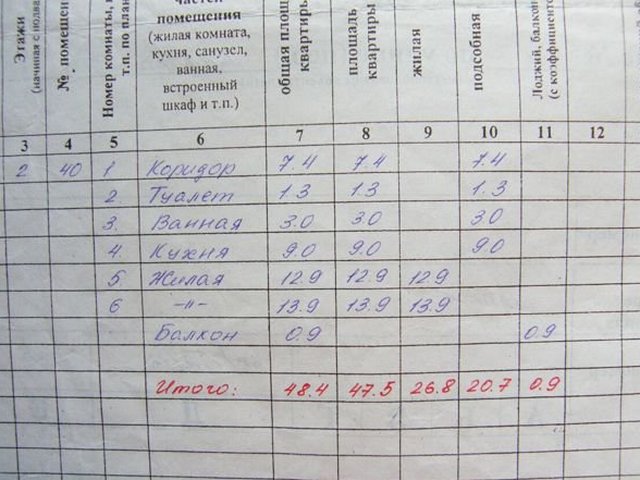 Этажи
(начиная с подва
№ помещен
Номер комнаты,
т.п. по план
частей
помещения
(жилая комната,
кухня, санузел,
ванная,
встроенный
шкаф и т.п.)
общая площ
квартиры
площадь
квартиры
жилая
подсобная
Лоджий, балкон
(с коэффициенто
3 4 5 6 7 8 9 10 11 12
2 40 1 Коридор 7.4 7.4 7.4
2 Туалет 1.3 1.3 1.3
3. Ванная 3.0 3.0 3.0
4. Кухня 9.0 9.0 9.0
5 Жилая 12.9 12.9 12.9
6 -"- 13.9 13.9 13.9
Балкон 0.9 0.9
Итого: 48.4 47.5 26.8 20.7 0.9